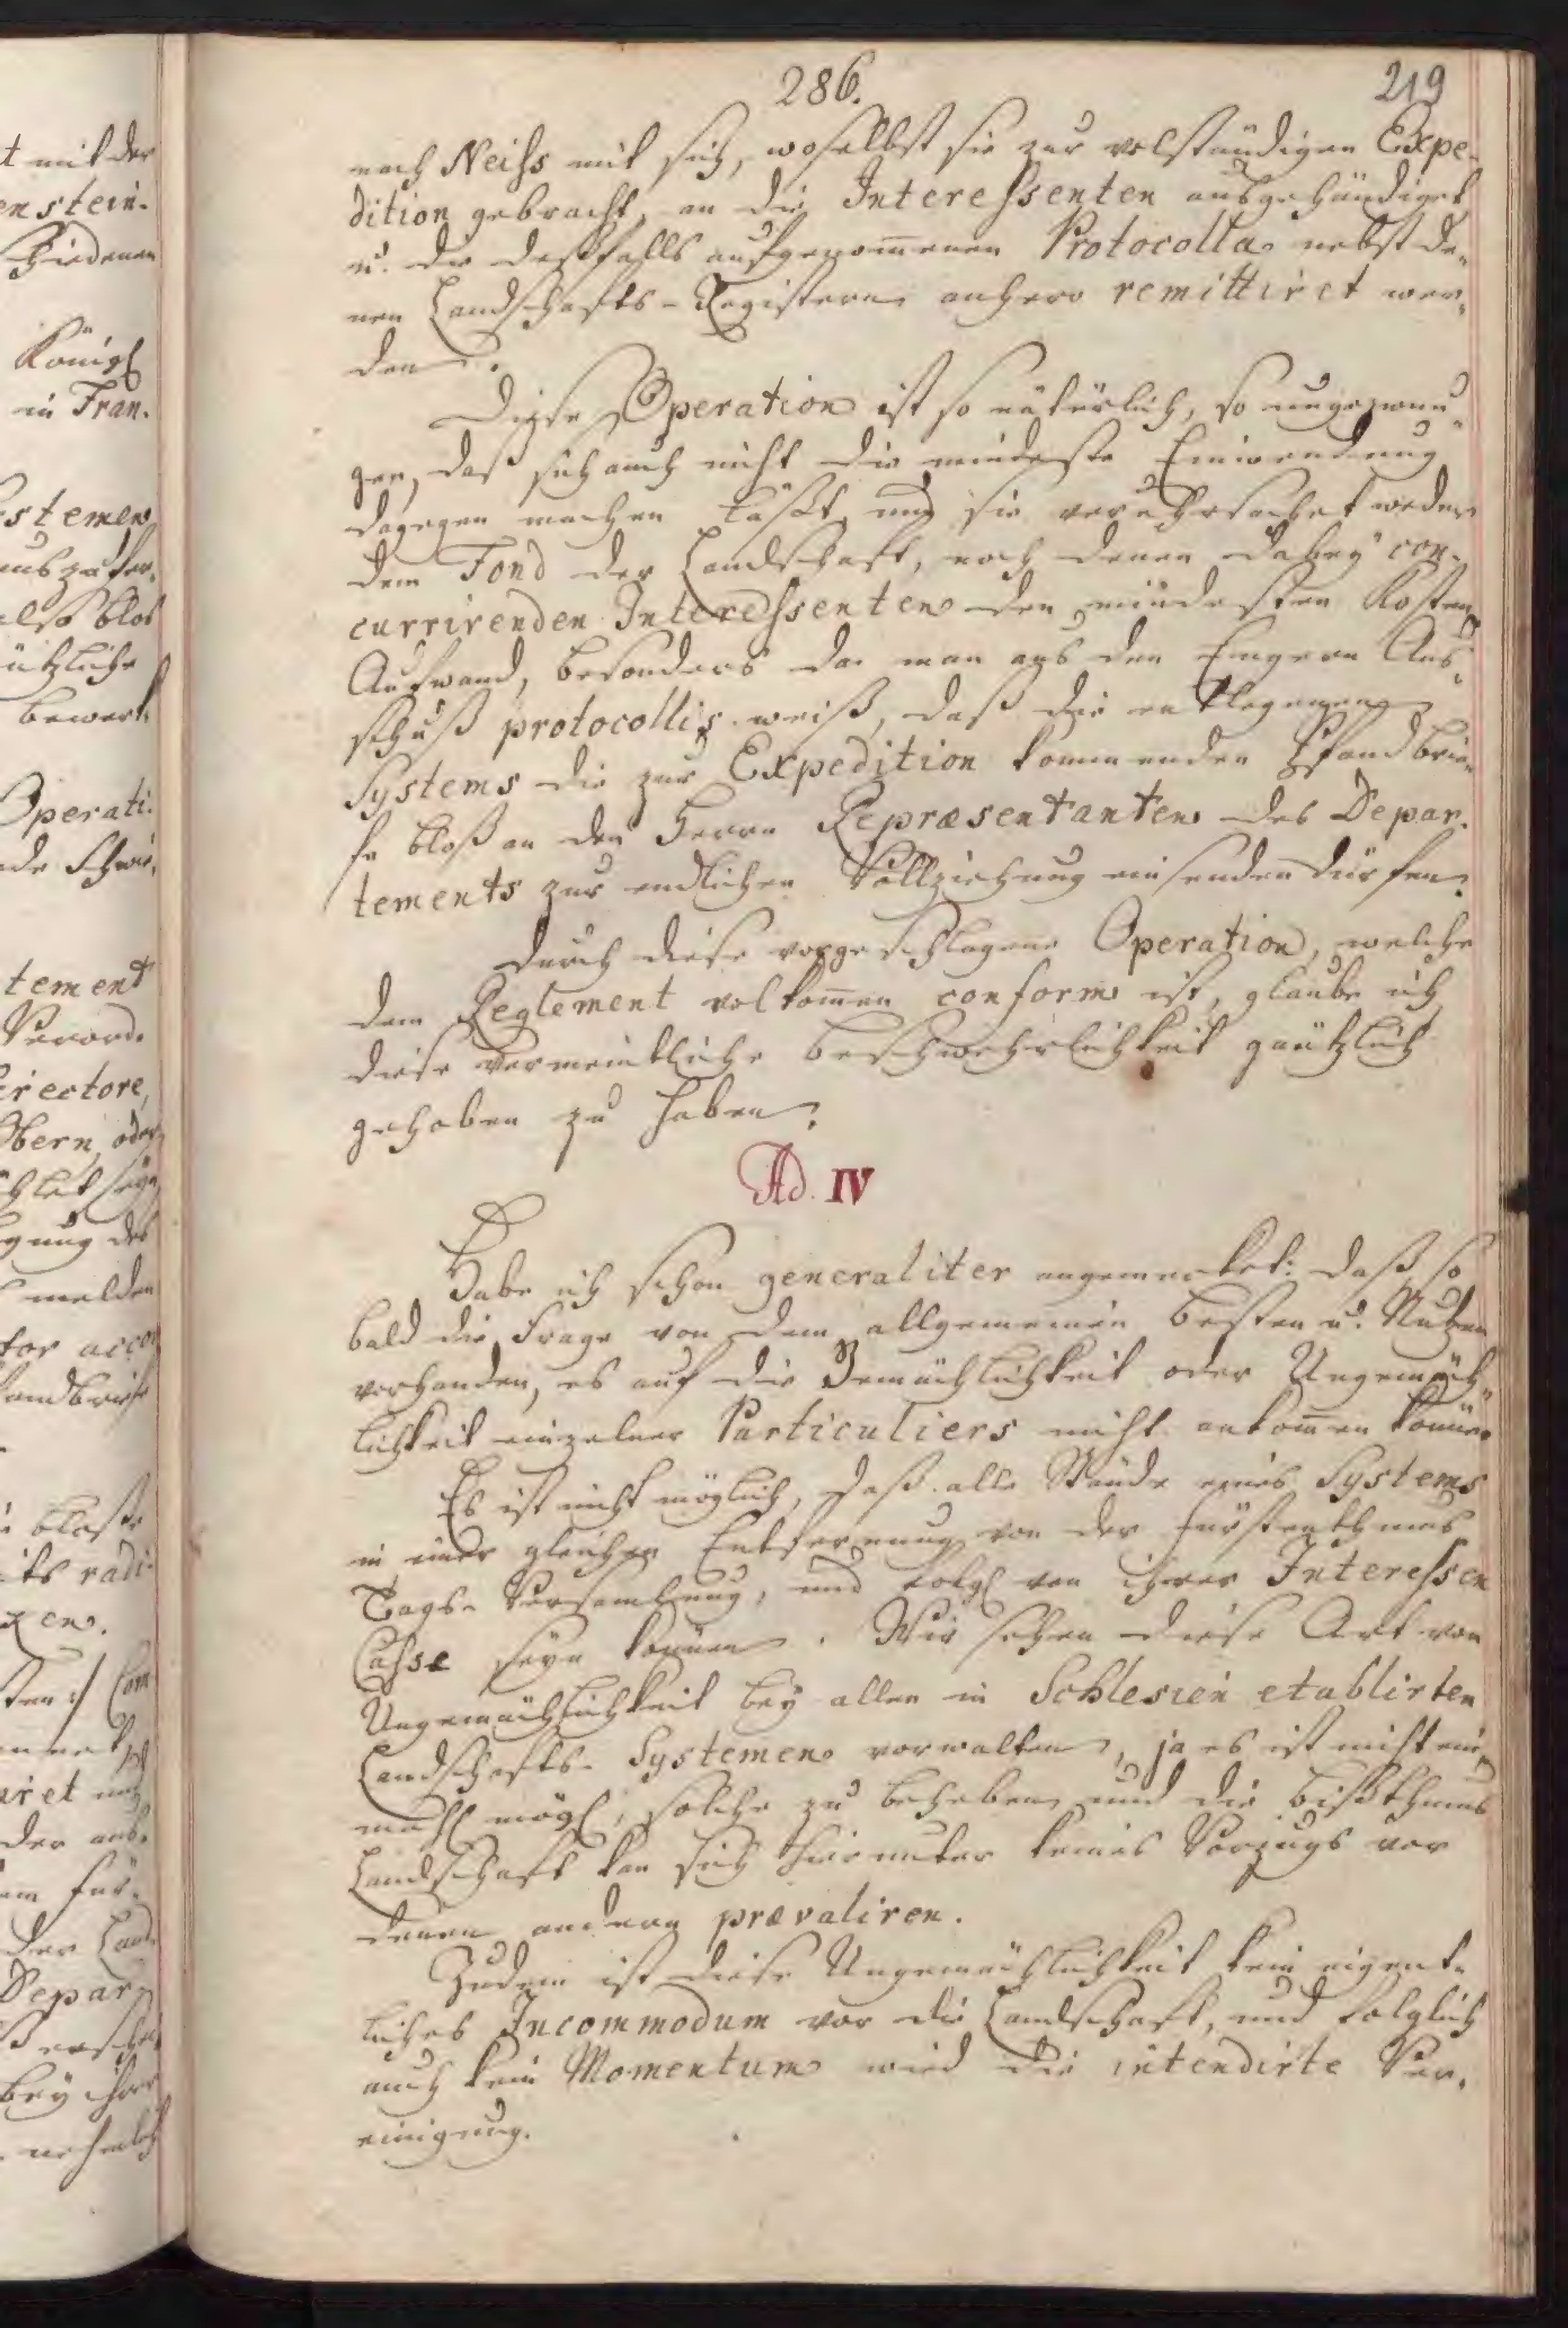 286.
219
nach Neiss mit sich, woselbst sie zur volständigen Expe-
dition gebracht, an die Interessenten ausgehändiget
u. die desfalls aufgenom̅enen Protocolla nebst de-
nen Landschafts-Registern anhero remittiret wer-
den.
Diese Operation ist so natürlich, so ungezwun-
gen, daß sich auch nicht die mindeste Einwendung
dagegen machen läßt und sie veruhrsachet weder
dem Fond der Landschaft, noch denen dabey con-
currirenden Interessenten den mindesten Kosten
Aufwand, besonders da man aus den Engern Aus-
schuß protocollis weiß, daß die entlegenen
Systems die zur Expedition kommenden Pfandbrie-
fe bloß an den Herrn Repræsentanten des Depar-
tements zur endlichen Vollziehung einsenden dürfen.
Durch diese vorgeschlagene Operation, welche
dem Reglement volkom̅en conform ist, glaube ich
diese vermeintliche Beschwehrlichkeit gäntzlich
gehoben zu haben.
Ad. IV
Habe ich schon generaliter angemerket: daß so
bald die Frage von dem allgemeinen Besten u. Nutzen
vorhanden, es auf die Gemächlichkeit oder Ungemäch-
lichkeit einzelner Particuliers nicht ankom̅en könne.
Es ist nicht möglich, daß alle Stände eines Systems
in einer gleichen Entfernung von der Fürstenthums
Tags-Versamlung, und folgl von ihrer Interessen
Casse seyn können. Wir sehen diese Art von
Ungemächlichkeit bey allen in Schlesien etablirten
Landschafts-Systemen vorwalten, ja es ist nicht ein-
mahl mögl, solche zu beheben und die Bißthums
Landschaft kan sich hierunter keines Vorzugs vor
denen andern prævaliren.
Zudem ist diese Ungemächlichkeit kein eigent-
liches Incommodum vor die Landschaft, und folglich
auch kein Momentum wied die intendirte Ver-
einigung.